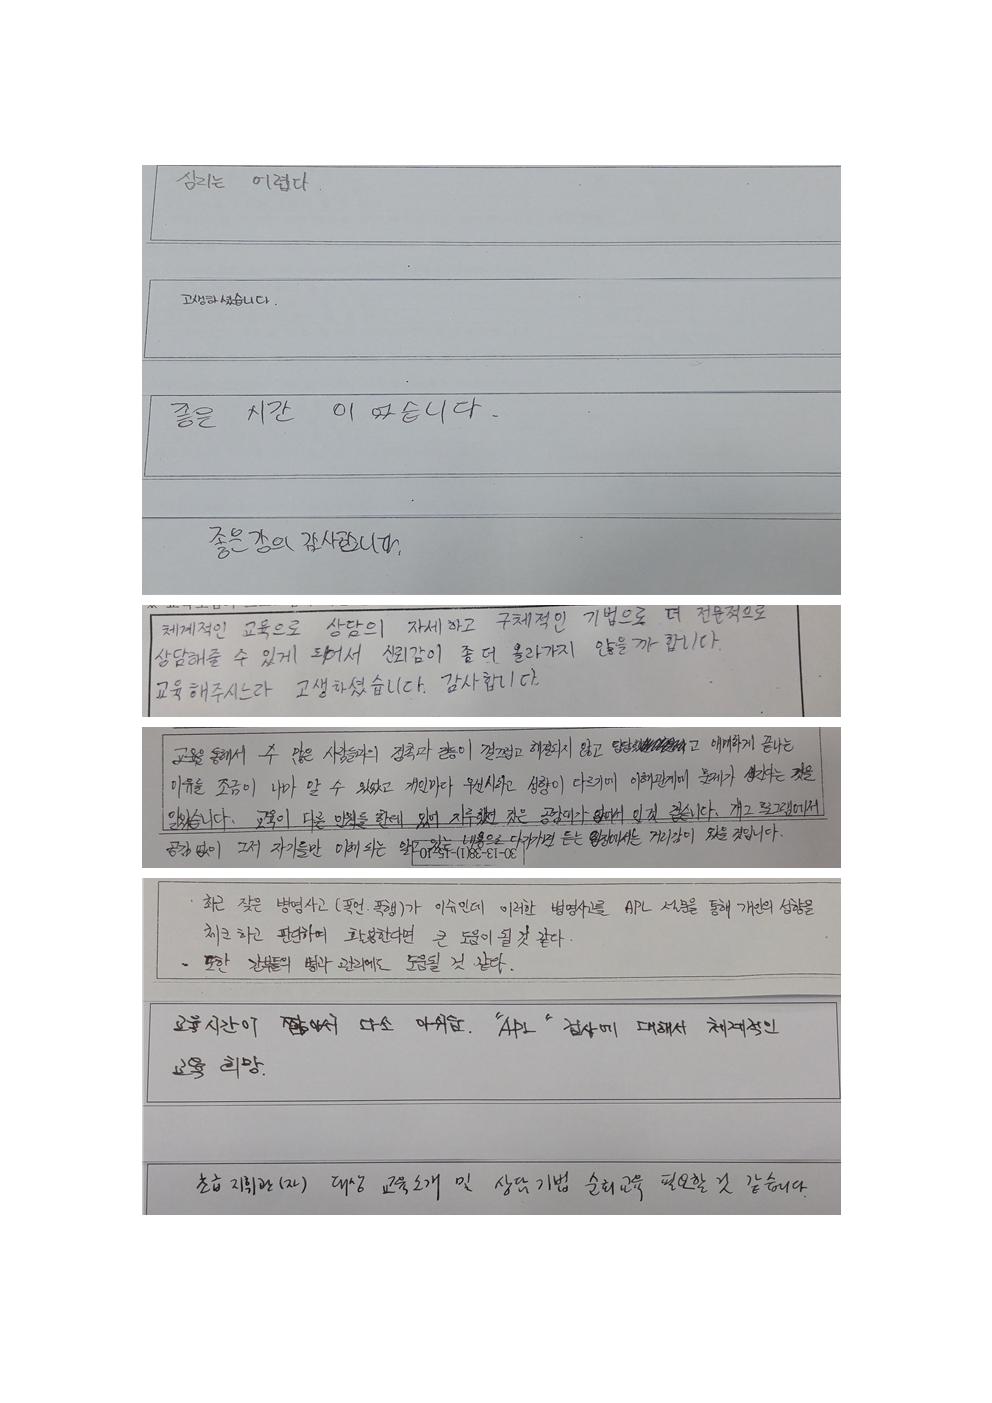 심리는 어렵다.
고생하셨습니다.
좋은 시간 이였습니다.
좋은강의 감사합니다.
체계적인 교육으로 상담의 자세하고 구체적인 기법으로 더 전문적으로
상담해줄 수 있게 되어서 신뢰감이 좀 더 올라가지 않을까 합니다.
교육해주시느라 고생하셨습니다. 감사합니다.
교육을 통해서 수 많은 사람들과의 접촉과 갈등이 해결되지 않고 애매하게 끝나는
이유를 조금이 나마 알 수 있었고 개인마다 우선시하고 성향이 다르기에 이해관계에 문제가 생긴다는 것을
알았습니다. 교육이 다른 인원들 한테 있어 지루했던 것은 공감대가 없어서 인 것 같습니다. 개그 프로그램에서
공감 없이 그저 자기들만 이해되는 알고 있는 내용으로 다가가면 듣는 입장에서는 거리감이 있을 것입니다.
30-13-38(1)-15-10
· 최근 잦은 병영사고(폭언.폭행)가 이슈인데 이러한 병영사고를 APL 설문을 통해 개인의 성향을
체크하고 판단하여 활용한다면 큰 도움이 될 것 같다.
· 또한 간부들의 병과 관리에도 도움될 것 같다.
교육시간이 짧아서 다소 아쉬움. "APL" 검사에 대해서 체계적인
교육 희망.
초급 지휘관(자) 대상 교육소개 및 상담기법 순회교육 필요할 것 같습니다.